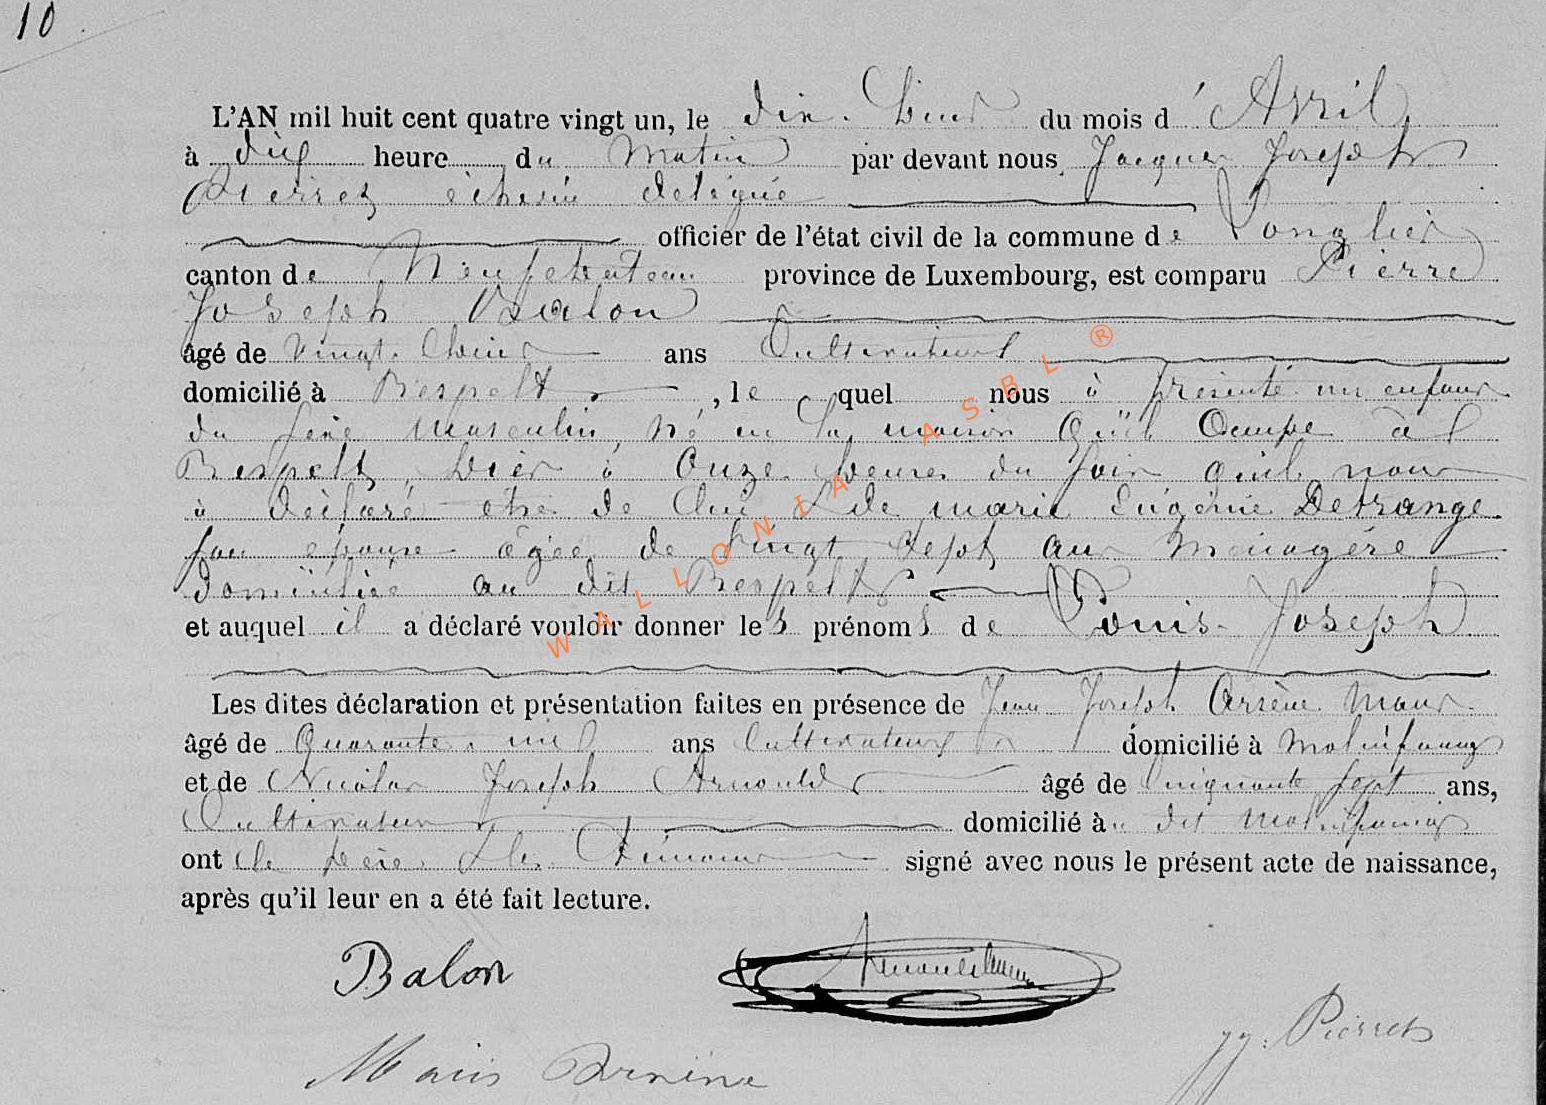 10
L'AN mil huit cent quatre vingt un, le dix-huit du mois d'Avril
à dix heure du Matin par devant nous Jacques Joseph
Pierret échevin délégué
officier de l'état civil de la commune de Longlier
canton de Neufchateau province de Luxembourg, est comparu Pierre
Joseph Balon
âgé de Vingt- ans Cultivateur
domicilié à Respelt, le quel nous à présenté un enfant
du sexe masculin, né en sa maison qu'il Occupe à
Respelt, hier à Onze heures du soir qu'il nous
à déclaré etre de lui & de marie Eugénie Detrange
son épouse âgée de Vingt sept ans Ménagère
domiciliée au dit Respelt
et auquel il a déclaré vouloir donner les prénoms de Louis-Joseph
Les dites déclaration et présentation faites en présence de Jean Joseph Arsène Maus
âgé de Quarante ans Cultivateur domicilié à Molinfaing
et de Nicolas Joseph Arnould âgé de Cinquante sept ans,
Cultivateur domicilié au dit Molinfaing
ont le père & les témoins signé avec nous le présent acte de naissance,
après qu'il leur en a été fait lecture.
Balon
JJ. Pierret
WALLONIA ASBL ®